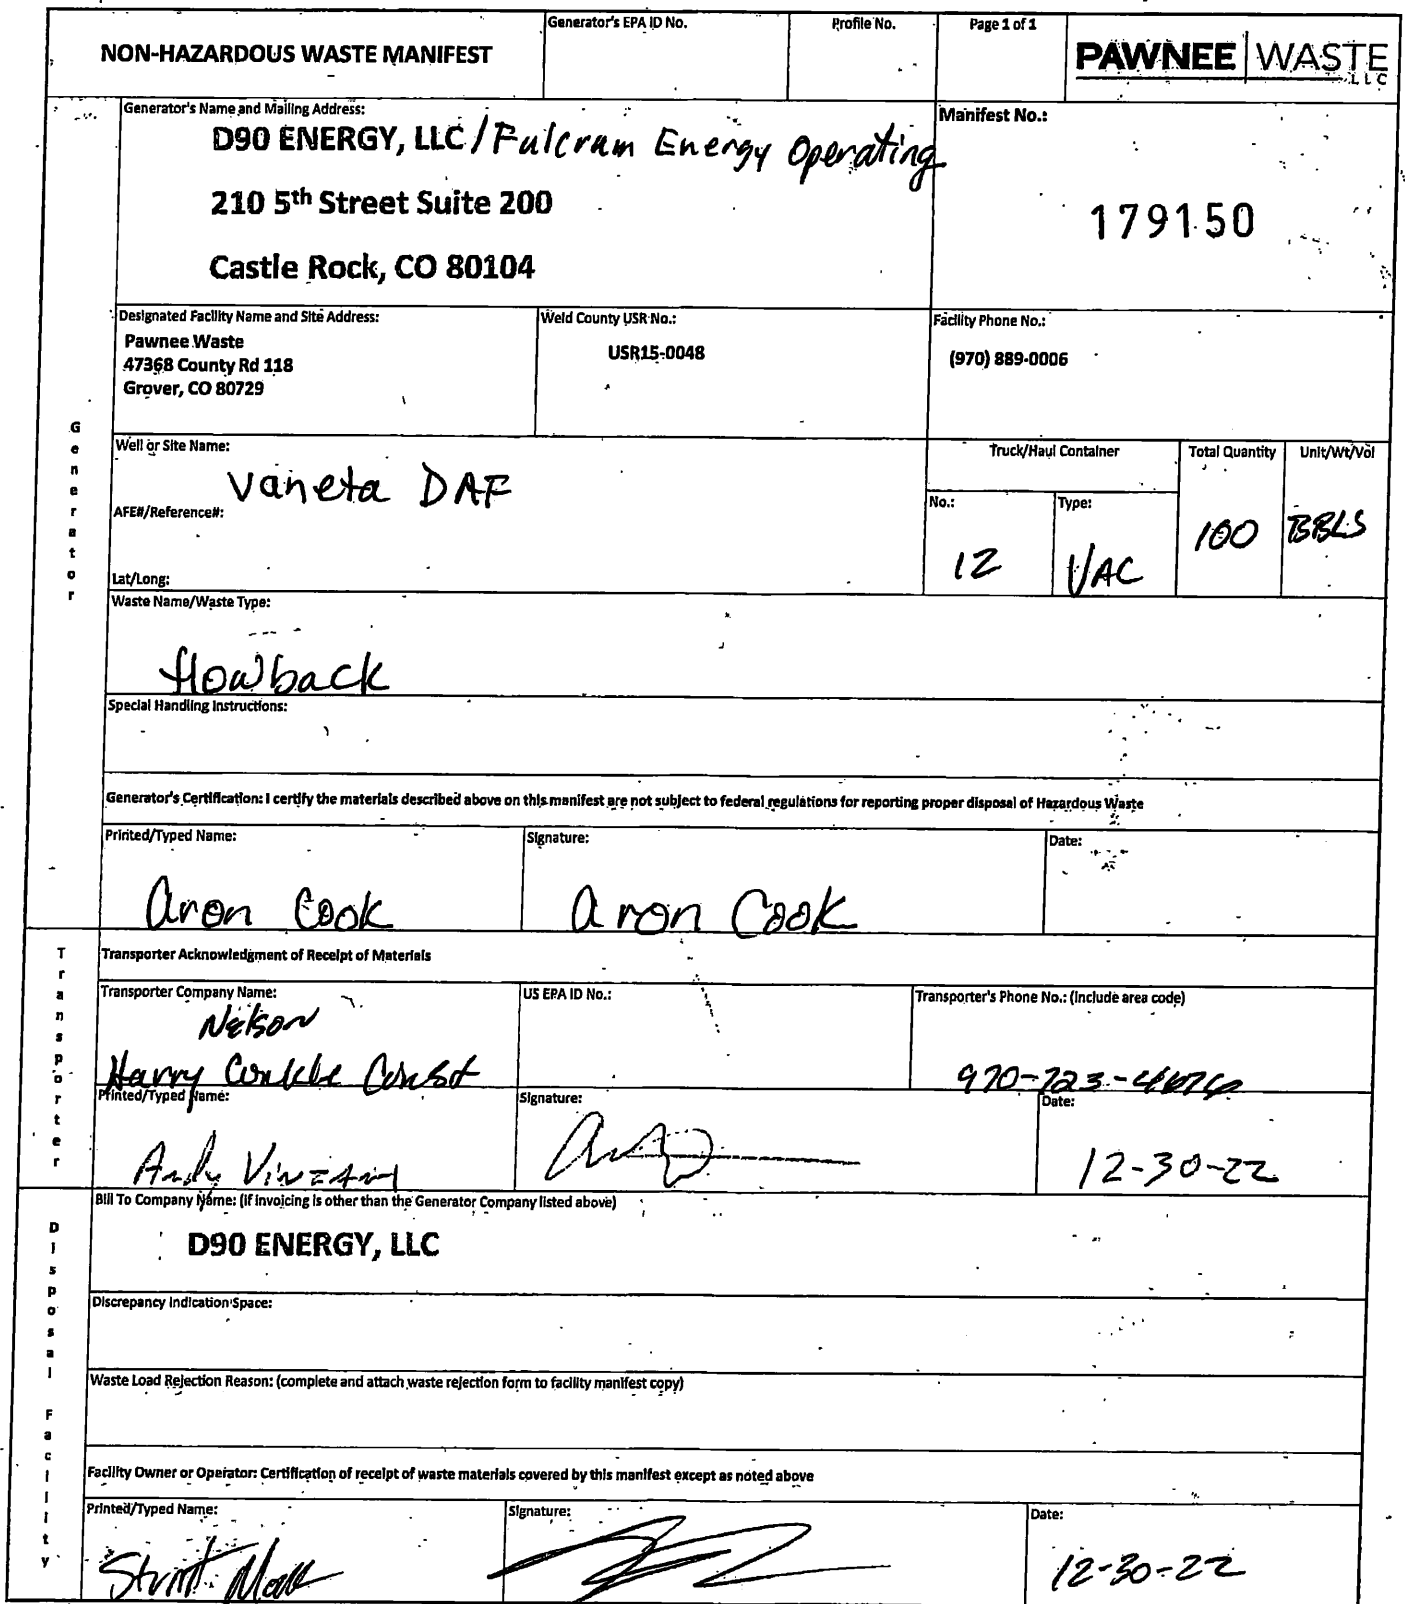 NON-HAZARDOUS WASTE MANIFEST
Generator's EPA ID No.
Profile No.
Page 1 of 1
PAWNEE WASTE LLC
Generator's Name and Mailing Address:
D90 ENERGY, LLC / Fulcrum Energy Operating
210 5th Street Suite 200
Castle Rock, CO 80104
Manifest No.:
179150
Designated Facility Name and Site Address:
Pawnee Waste
47368 County Rd 118
Grover, CO 80729
Weld County USR No.:
USR15-0048
Facility Phone No.:
(970) 889-0006
Generator
Well or Site Name:
Vaneta DAF
AFE#/Reference#:
Lat/Long:
Truck/Haul Container
No.:
12
Type:
VAC
Total Quantity
100
Unit/Wt/Vol
BBLS
Waste Name/Waste Type:
flowback
Special Handling Instructions:
Generator's Certification: I certify the materials described above on this manifest are not subject to federal regulations for reporting proper disposal of Hazardous Waste
Printed/Typed Name:
Aron Cook
Signature:
Aron Cook
Date:
Transporter
Transporter Acknowledgment of Receipt of Materials
Transporter Company Name:
Nelson
Harry Const
US EPA ID No.:
Transporter's Phone No.: (Include area code)
970-723-
Printed/Typed Name:
Andy
Signature:
Date:
12-30-22
Disposal Facility
Bill To Company Name: (if invoicing is other than the Generator Company listed above)
D90 ENERGY, LLC
Discrepancy Indication Space:
Waste Load Rejection Reason: (complete and attach waste rejection form to facility manifest copy)
Facility Owner or Operator: Certification of receipt of waste materials covered by this manifest except as noted above
Printed/Typed Name:
Signature:
Date:
12-30-22